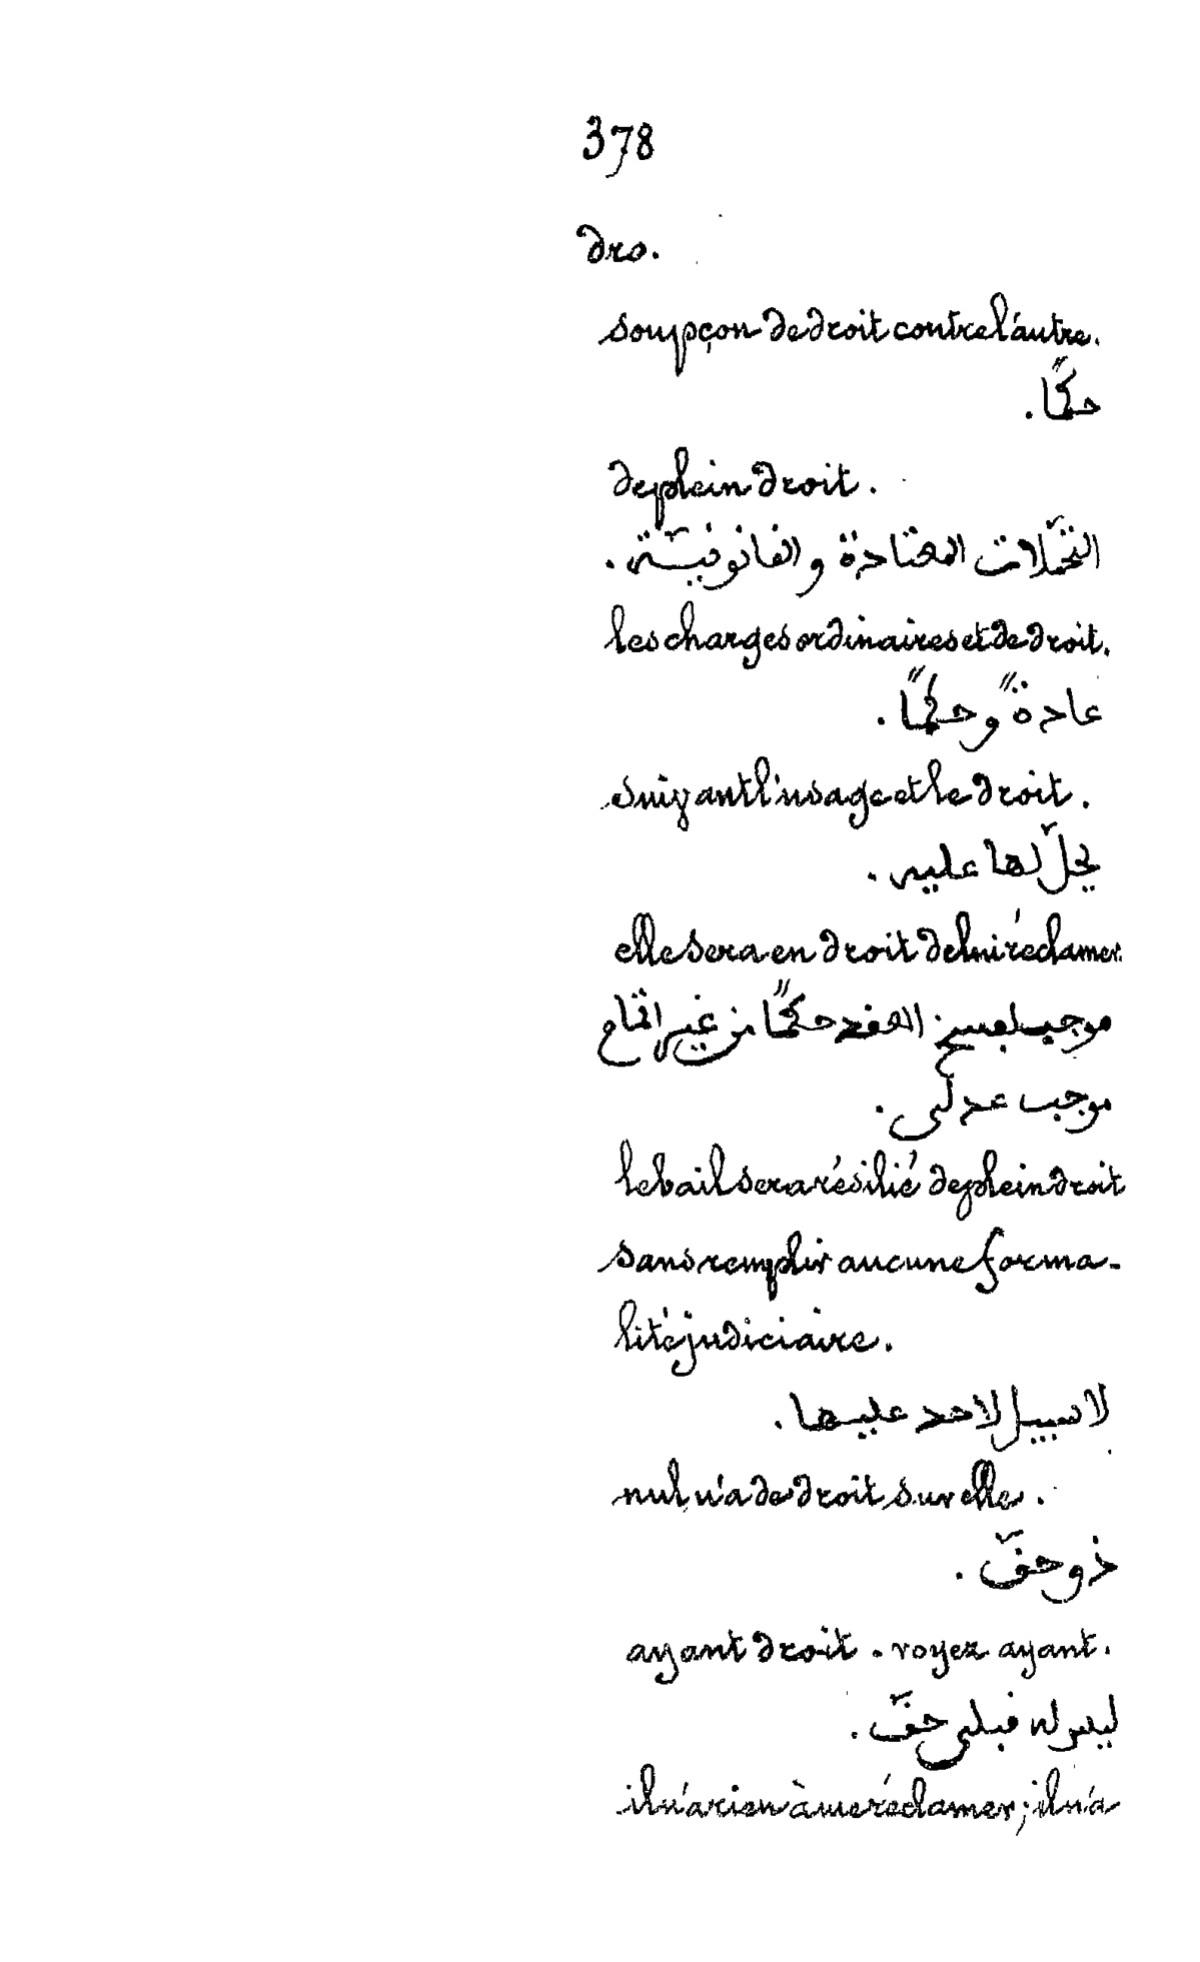 378
dro.
soupçon de droit contre l'autre.
حكمًا.
de plein droit.
التحمّلات المعتادة والقانونيّة.
les charges ordinaires et de droit.
عادةً وحكمًا.
suivant l'usage et le droit.
يحلّ لها عليه.
elle sera en droit de lui réclamer.
موجب لفسخ العقد حكمًا من غير اتمام
موجب عدلى.
le bail sera résilié de plein droit
sans remplir aucune forma-
lité judiciaire.
لا سبيل لاحد عليها.
nul n'a de droit sur elle.
ذو حقّ.
ayant droit. voyez ayant.
ليس له قبلى حقّ.
il n'a rien à me réclamer; il n'a